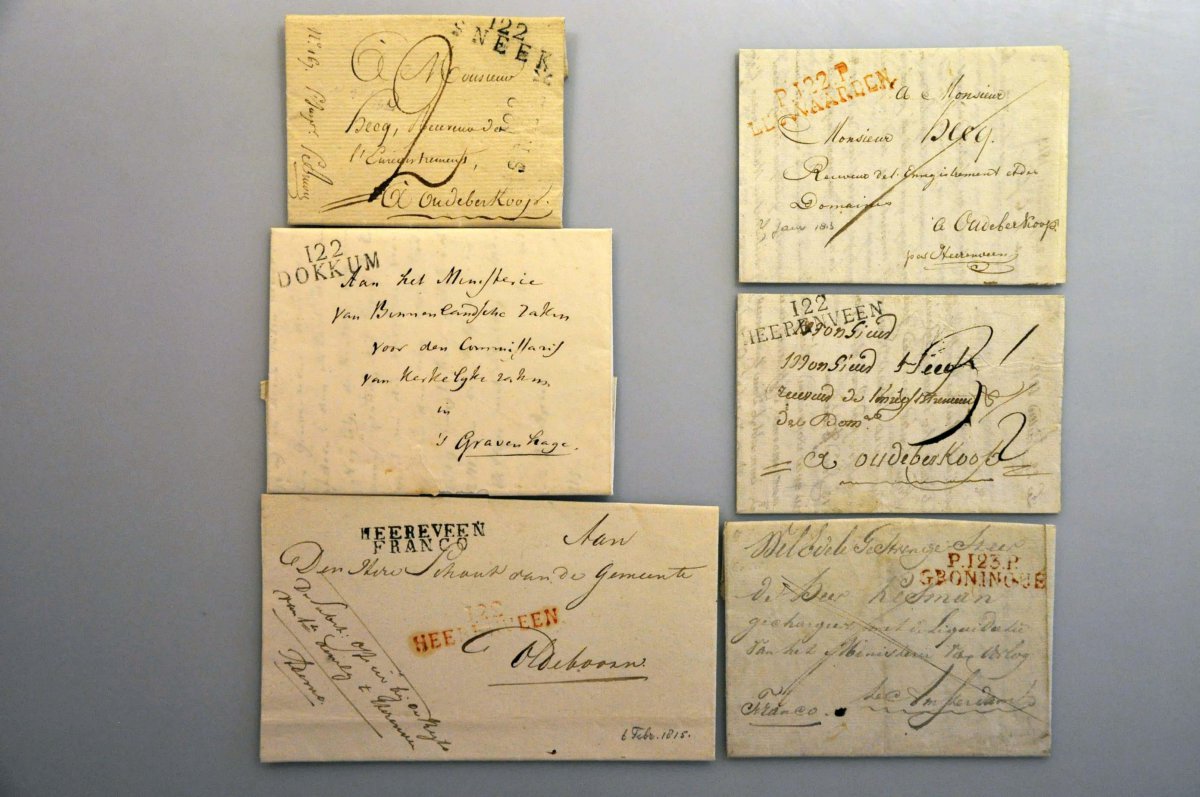 122
SNEEK
à Monsieur
Hecq, Receveur de
l'Enregistrement,
à Oudeberkoop.
122
DOKKUM
Aan het Ministerie
van Binnenlandsche zaken
voor den Commissaris
van Kerkelyke zaken
in
's Gravenhage.
HEEREVEEN
FRANCO
Aan
Den Here Schout van de Gemeente
122
HEERENVEEN
Oldeboorn
6 Febr. 1815.
P.122.P.
LEEUWAARDEN
a Monsieur
Monsieur Hecq.
Receveur de l'Enregistrement et des
Domaines
a Oudeberkoop
par Heerenveen
122
HEERENVEEN
Monsieur
Monsieur Hecq
receveur de
des Dom.
a oudeberkoop
Wel Edele Gestrenge Heer
P.123.P.
GRONINGUE
De Heer
gechargeerd met de Liquidatie
van het Ministerie van Oorlog
Franco. te Amsterdam